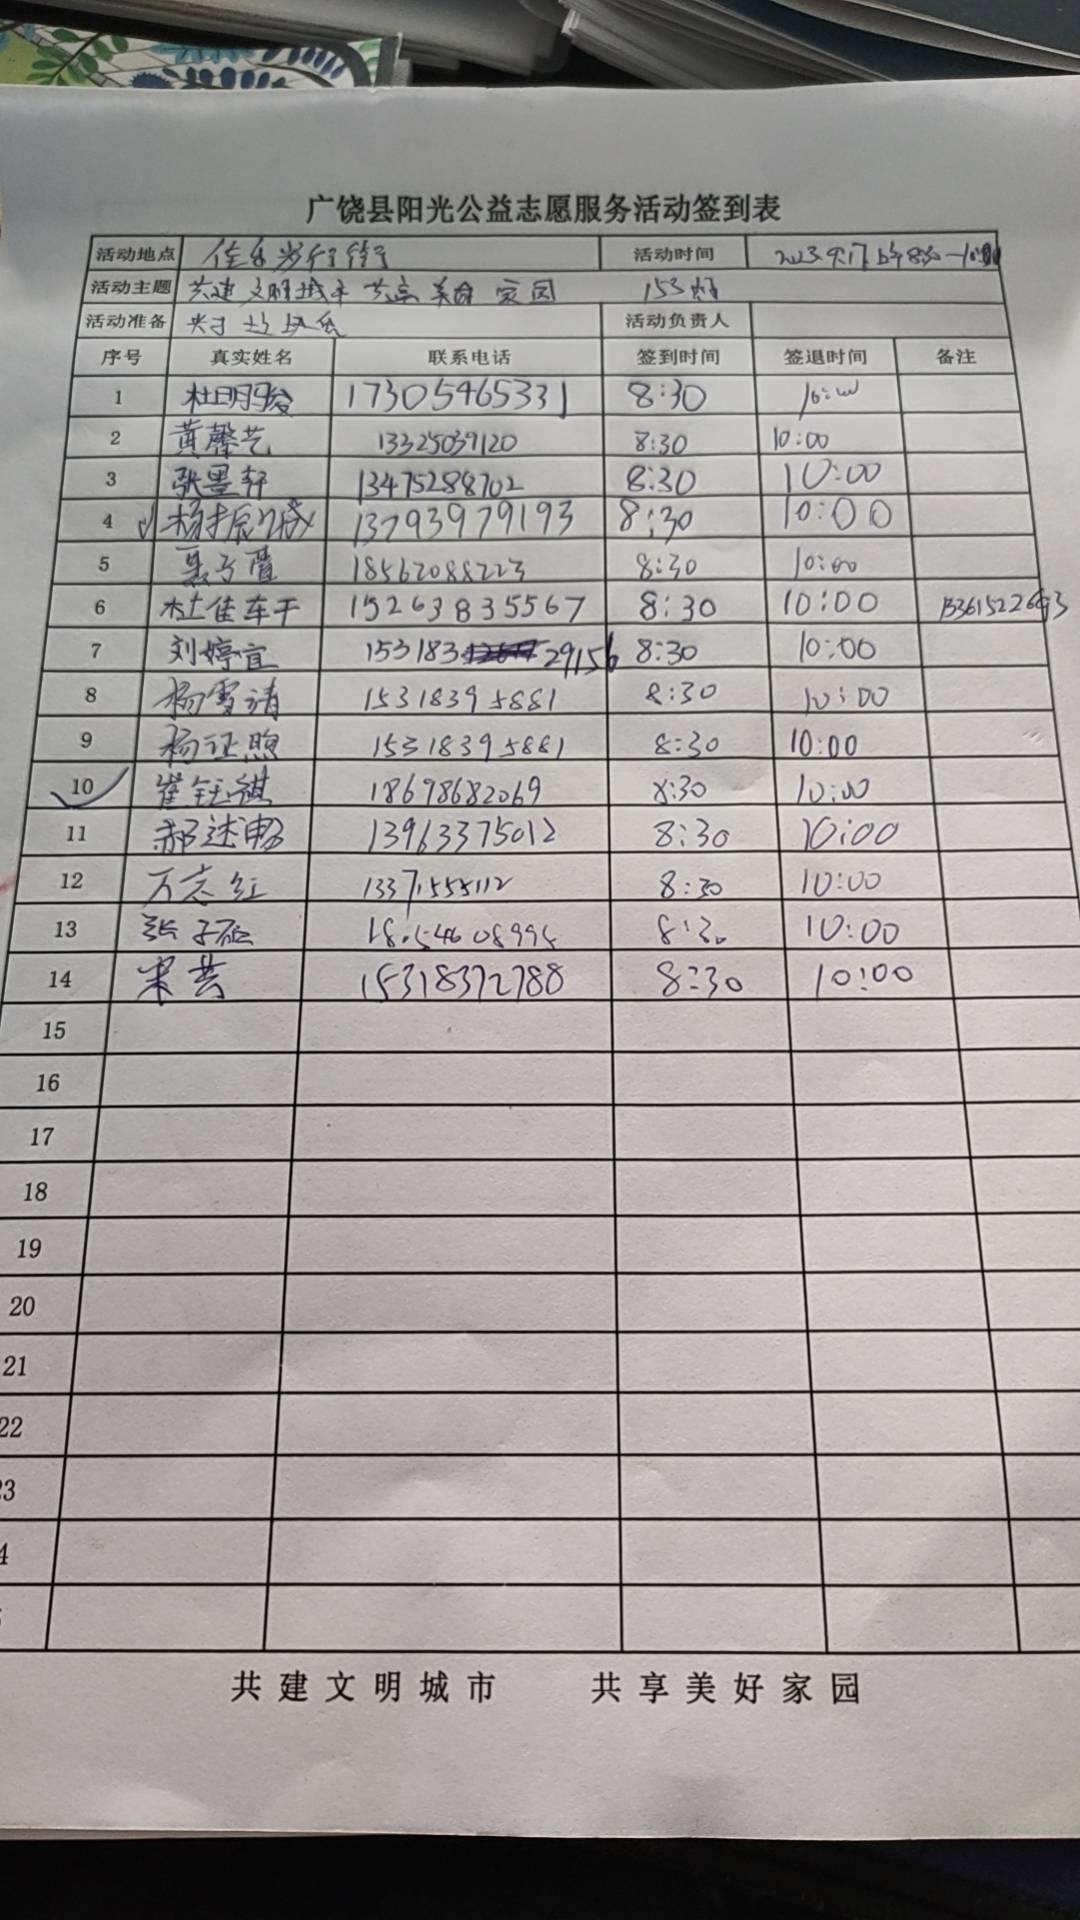 广饶县阳光公益志愿服务活动签到表
活动地点 佳乐步行街 活动时间 2023.9.17 8:30-10:00
活动主题 共建文明城市 共享美好家园 153
活动准备 活动负责人
序号 真实姓名 联系电话 签到时间 签退时间 备注
1 杜明骏 17305465331 8:30 10:00
2 黄馨艺 13325039120 8:30 10:00
3 张墨轩 13475288702 8:30 10:00
4 杨振 13793979193 8:30 10:00
5 子萱 18562088223 8:30 10:00
6 杜佳 15263835567 8:30 10:00
7 刘婷宜 153183 29156 8:30 10:00
8 杨雪靖 15318395881 8:30 10:00
9 杨证煦 15318395881 8:30 10:00
10 崔钰祺 18698682069 8:30 10:00
11 郝述 13963375012 8:30 10:00
12 万志红 13371555112 8:30 10:00
13 张子 18654608995 8:30 10:00
14 宋芸 15318372788 8:30 10:00
15
16
17
18
19
20
21
22
23
4
共建文明城市 共享美好家园